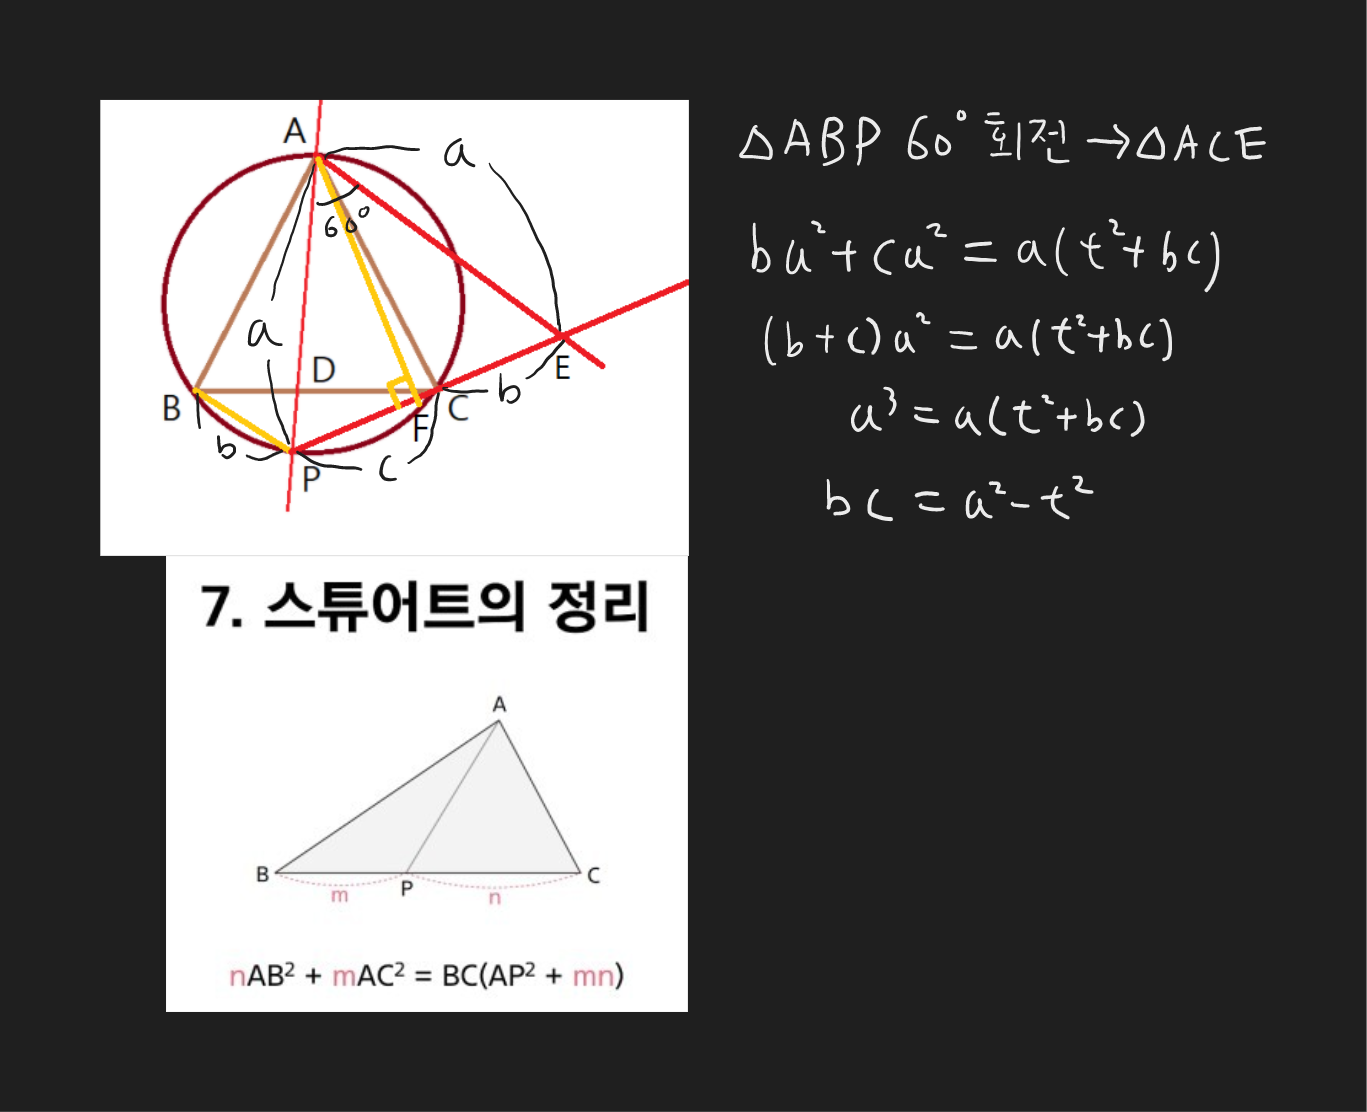 A
a
60°
a
D
B
E
b
C
F
b
c
P
△ABP 60° 회전 → △ACE
ba² + ca² = a(t² + bc)
(b + c)a² = a(t² + bc)
a³ = a(t² + bc)
bc = a² - t²
7. 스튜어트의 정리
A
B
P
C
m
n
nAB² + mAC² = BC(AP² + mn)